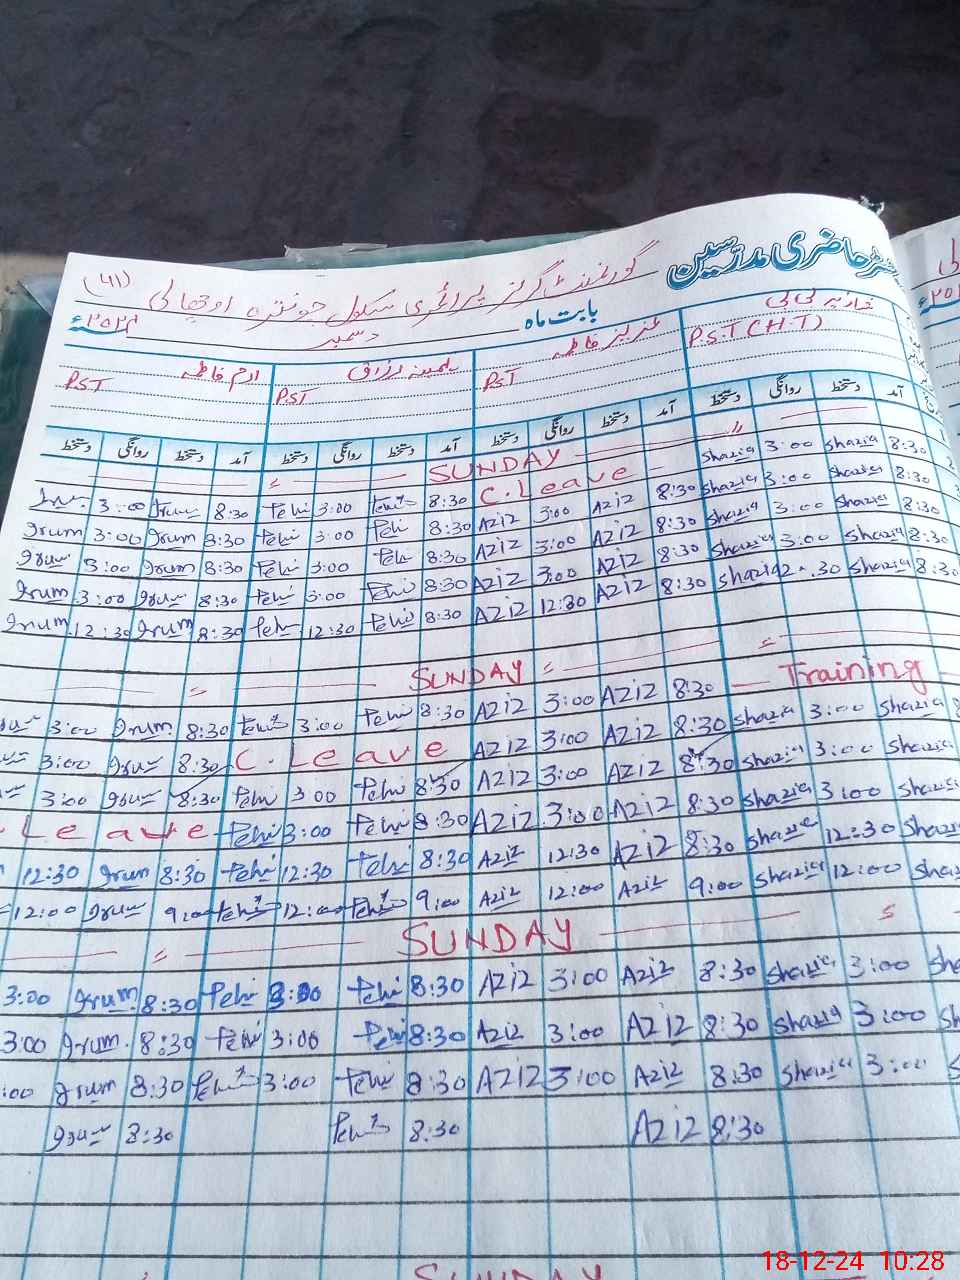 رجسٹر حاضری مدرسین
گورنمنٹ گرلز پرائمری سکول جونترہ اوچھالی (41)
بابت ماہ دسمبر ۲۰۲۴ء
شازیہ بی بی عزیز فاطمہ رزاق ارم فاطمہ
P.S.T (H.T) PST PST PST
آمد دستخط روانگی دستخط آمد دستخط روانگی دستخط آمد دستخط روانگی دستخط آمد دستخط روانگی دستخط
SUNDAY
3:00 Irum 8:30 Pehi 3:00 Pehi 8:30 C. Leave Shazia 3:00 Shazia 8:30
Irum 3:00 Irum 8:30 Pehi 3:00 Pehi 8:30 Aziz 3:00 Aziz 8:30 Shazia 3:00 Shazia 8:30
Irum 3:00 Irum 8:30 Pehi 3:00 Pehi 8:30 Aziz 3:00 Aziz 8:30 Shazia 3:00 Shazia 8:30
Irum 3:00 Irum 8:30 Pehi 3:00 Pehi 8:30 Aziz 3:00 Aziz 8:30 Shazia 3:00 Shazia 8:30
Irum 12:30 Irum 8:30 Pehi 12:30 Pehi 8:30 Aziz 12:30 Aziz 8:30 Shazia 12:30 Shazia 8:30
SUNDAY
3:00 Irum 8:30 Pehi 3:00 Pehi 8:30 Aziz 3:00 Aziz 8:30 Training
3:00 Irum 8:30 C. Leave Aziz 3:00 Aziz 8:30 Shazia 3:00 Shazia
3:00 Irum 8:30 Pehi 3:00 Pehi 8:30 Aziz 3:00 Aziz 8:30 Shazia 3:00 Shazia
Leave Pehi 3:00 Pehi 8:30 Aziz 3:00 Aziz 8:30 Shazia 3:00 Shazia
12:30 Irum 8:30 Pehi 12:30 Pehi 8:30 Aziz 12:30 Aziz 8:30 Shazia 12:30 Shazia
12:00 Irum 9:00 Pehi 12:00 Pehi 9:00 Aziz 12:00 Aziz 9:00 Shazia 12:00 Shazia
SUNDAY
3:00 Irum 8:30 Pehi 3:00 Pehi 8:30 Aziz 3:00 Aziz 8:30 Shazia 3:00 Sha
3:00 Irum 8:30 Pehi 3:00 Pehi 8:30 Aziz 3:00 Aziz 8:30 Shazia 3:00 Sh
:00 Irum 8:30 Pehi 3:00 Pehi 8:30 Aziz 3:00 Aziz 8:30 Shazia 3:00 S
Irum 8:30 Pehi 8:30 Aziz 8:30
SUNDAY
18-12-24 10:28